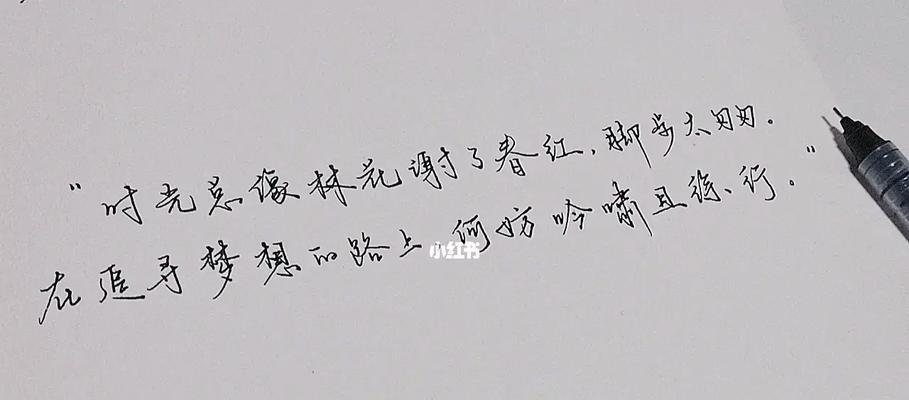 “时光总像林花谢了春红,脚步太匆匆。
在追寻梦想的路上何妨吟啸且徐行。”
小红书